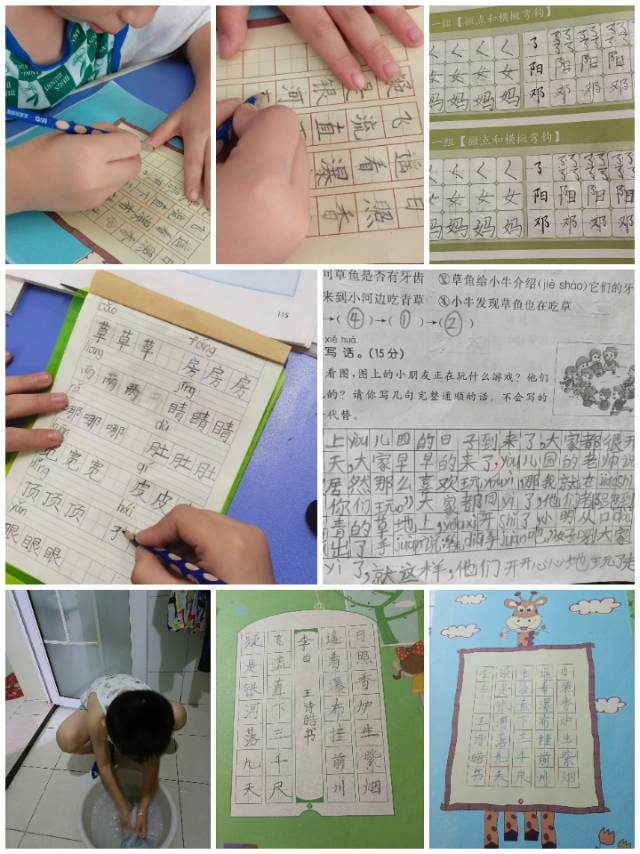 日照香
遥看瀑
飞流直下
疑是银河
一组【撇点和横撇弯钩】
女 女 女 女 阳 阳 阳 阳
妈 妈 妈 妈 邓 邓 邓 邓
一组【撇点和横撇弯钩】
女 女 女 女 阳 阳 阳 阳
妈 妈 妈 妈 邓 邓 邓 邓
115
cǎo fáng
草草草 房房房
liǎng jīng
两两两 睛睛睛
nǎ dù
哪哪哪 肚肚肚
kuān pí
宽宽宽 皮皮
dǐng hái
顶顶顶
yǎn
眼眼眼
草鱼是否有牙齿 ③草鱼给小牛介绍(jiè shào)它们的牙
来到小河边吃青草 ④小牛发现草鱼也在吃草
→( ④ )→( ① )→( ② )
xiě huà
写话。(15分)
看图,图上的小朋友正在玩什么游戏?他们
的?请你写几句完整通顺的话。不会写的
代替。
上yòu儿园的日子到来了,大家都很开
天,大家早早的来了,yòu儿园的老师说
居然那么喜欢玩yóuxì,那我就在
你们玩。”大家都同yì了,他们
青的草地上,yóuxì开shǐ了,小明从口
出了手juàn说
yì了,就这样,他们开开心心地玩了
日照香炉生紫烟
遥看瀑布挂前川
李白 王诗皓书
飞流直下三千尺
疑是银河落九天
日照香炉生紫烟
遥看瀑布挂前川
飞流直下三千尺
疑是银河落九天
李白 王诗皓书